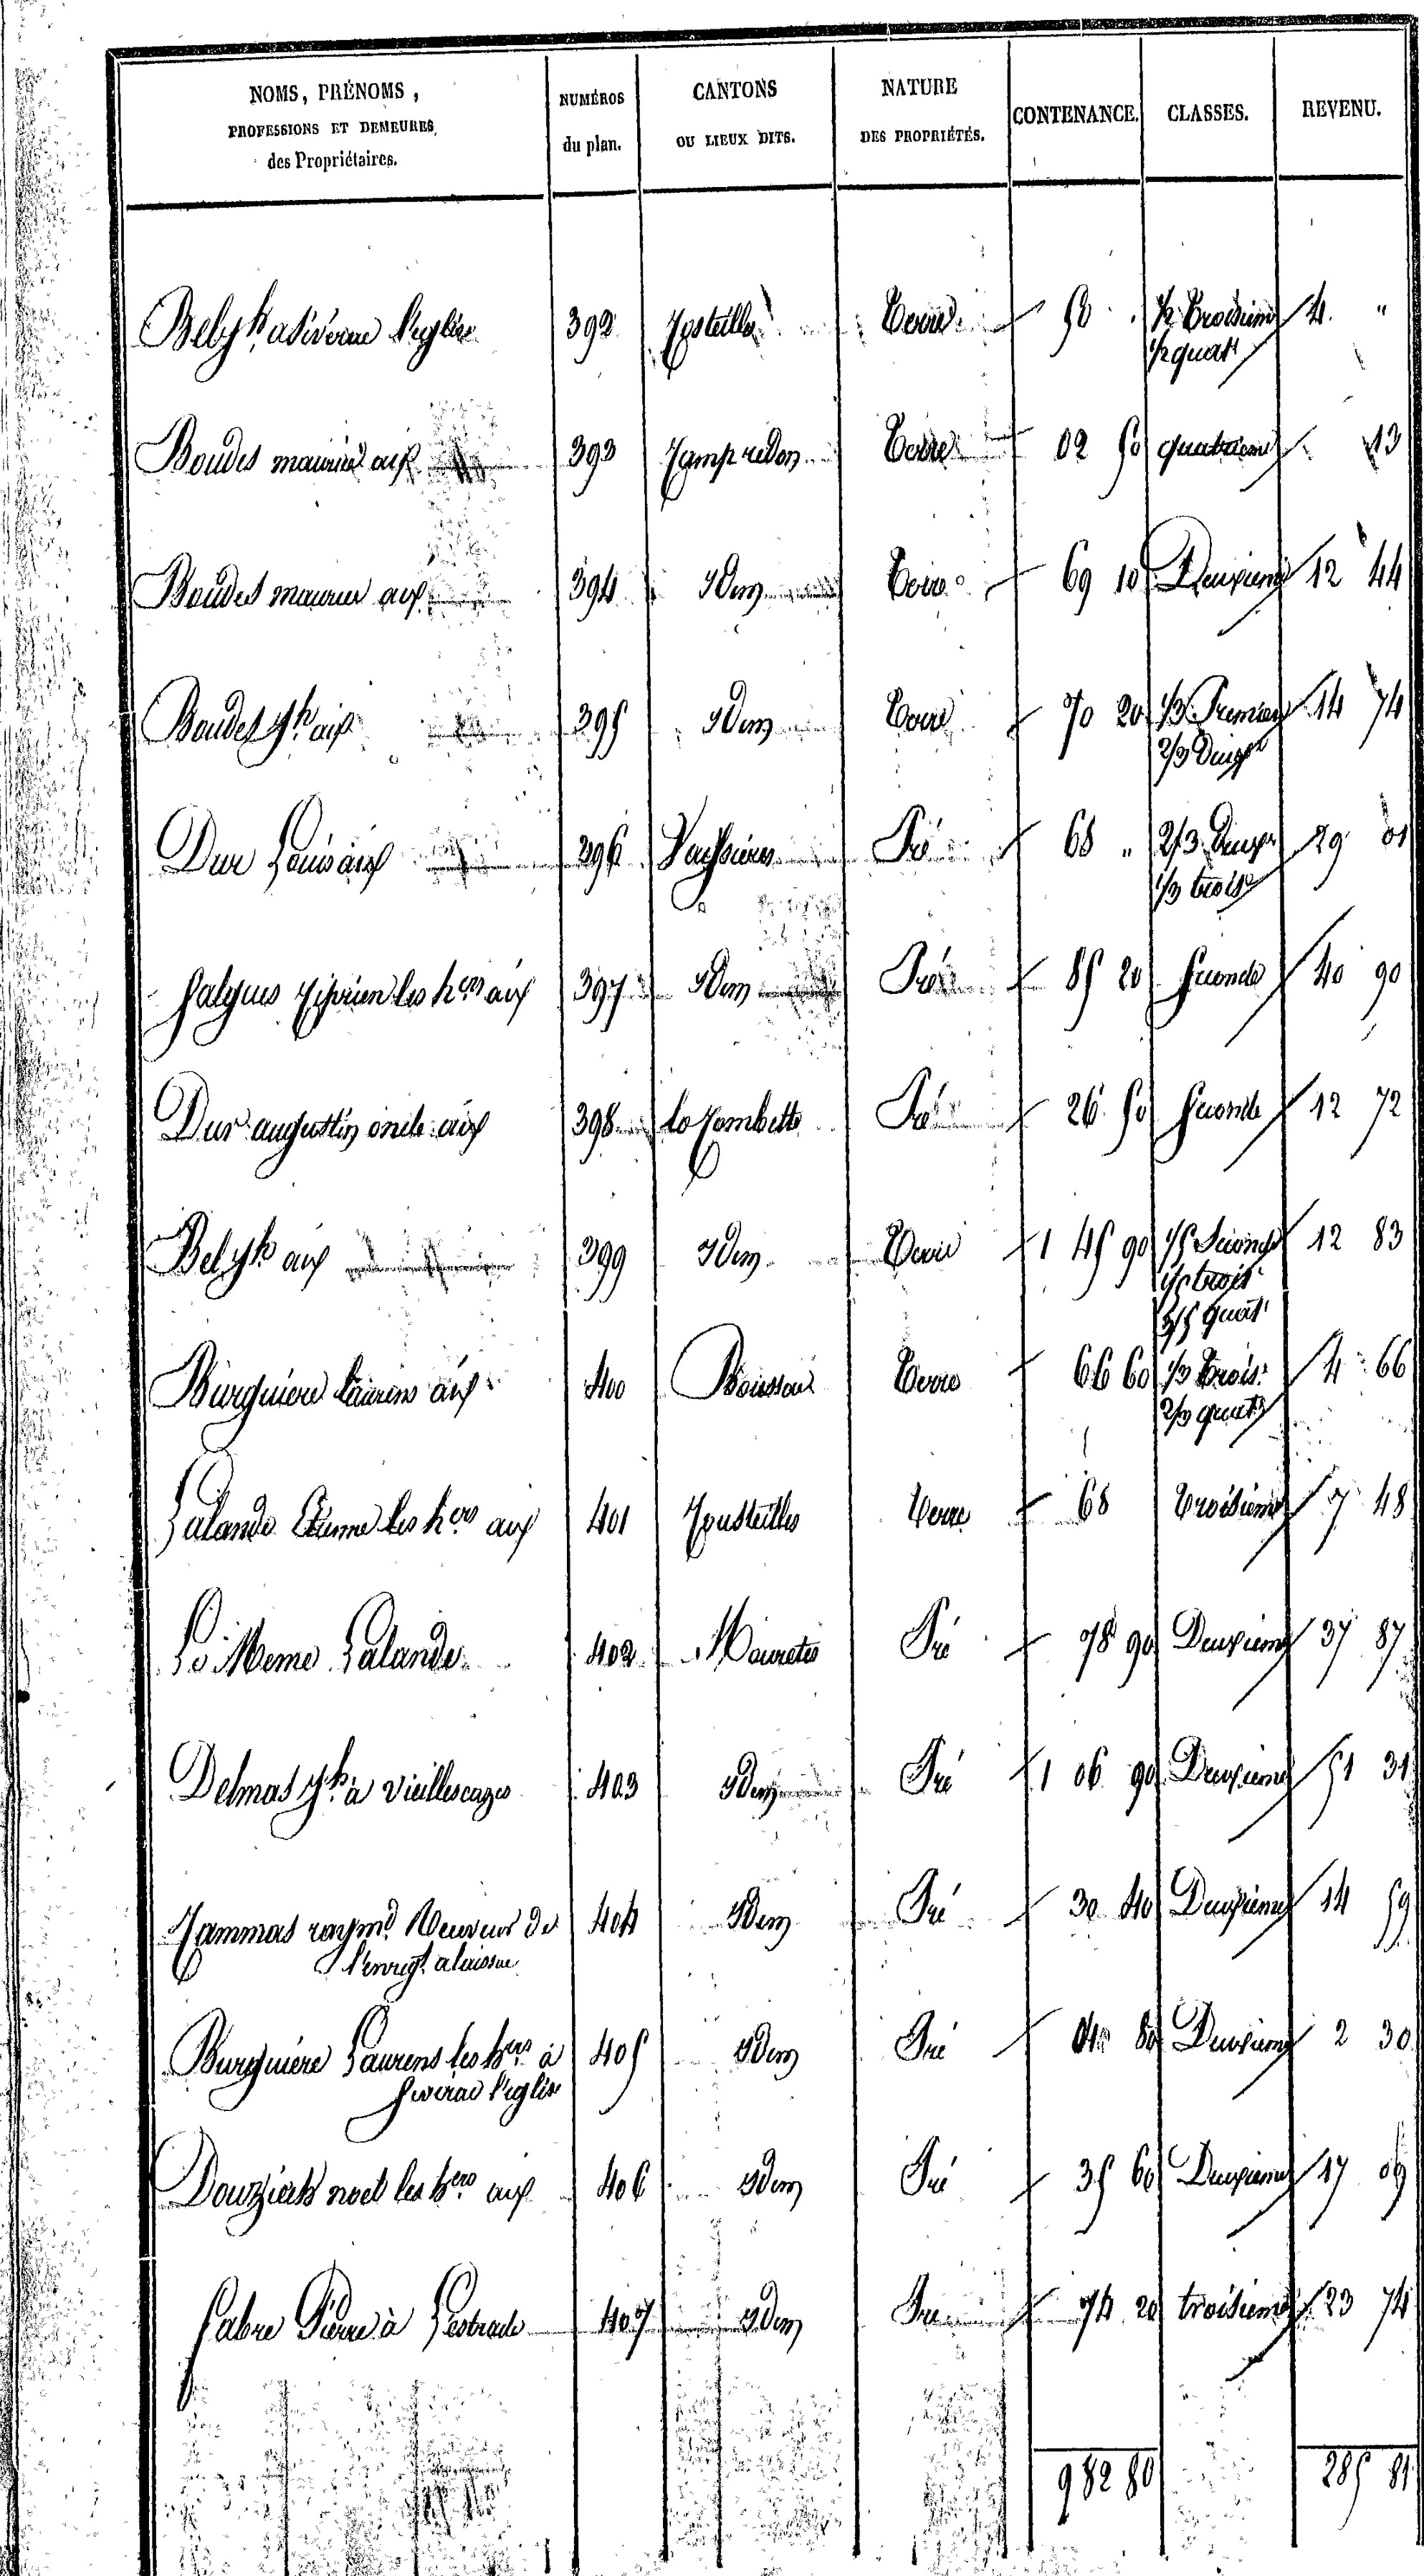 NOMS, PRÉNOMS, PROFESSIONS ET DEMEURES des Propriétaires. | NUMÉROS du plan. | CANTONS OU LIEUX DITS. | NATURE DES PROPRIÉTÉS. | CONTENANCE. | CLASSES. | REVENU.
l'eglise 392 Terre 50 1/2 troisieme 4 "
1/2 quat
Boudes maurice aux 393 Camp redon Terre 02 50 quatrieme 13
Boudes maurice aux 394 Idem Terre 69 10 Deuxieme 12 44
Boudes Jh aux 395 Idem Terre 70 20 1/3 Premiere 14 74
2/3 Deuxe
Dur Louis aux 396 Pré 68 " 2/3 Deuxe 29 01
1/3 troise
les hers aux 397 Idem Pré 85 20 Seconde 40 90
Dur augustin oncle aux 398 la Combette Pré 26 50 Seconde 12 72
Bely Jh aux 399 Idem Terre 1 45 90 1/5 Seconde 12 83
1/5 trois
3/5 quat
Burguiere Laurens aux 400 Terre 66 60 1/3 trois 4 66
2/3 quat
Lalande Etienne les hers aux 401 Cousteilles Terre 68 troisieme 7 48
Le Meme Lalande 402 Pré 78 90 Deuxieme 37 87
Delmas Jh à Vieillescazes 403 Idem Pré 1 06 90 Deuxieme 51 31
Cammas raymd de 404 Idem Pré 30 40 Deuxieme 14 59
l'enregt
Burguiere Laurens les hers à 405 Idem Pré 04 80 Deuxieme 2 30
Siverac l'eglise
Douziech noel les hers aux 406 Idem Pré 35 60 Deuxieme 17 09
fabre Pierre à Lestrade 407 Idem Pré 74 20 troisieme 23 74
982 80 285 81